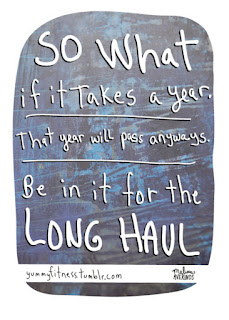 SO What
if it Takes a year.
That year will pass anyways.
Be in it for the
LONG HAUL
yummyfitness.tumblr.com